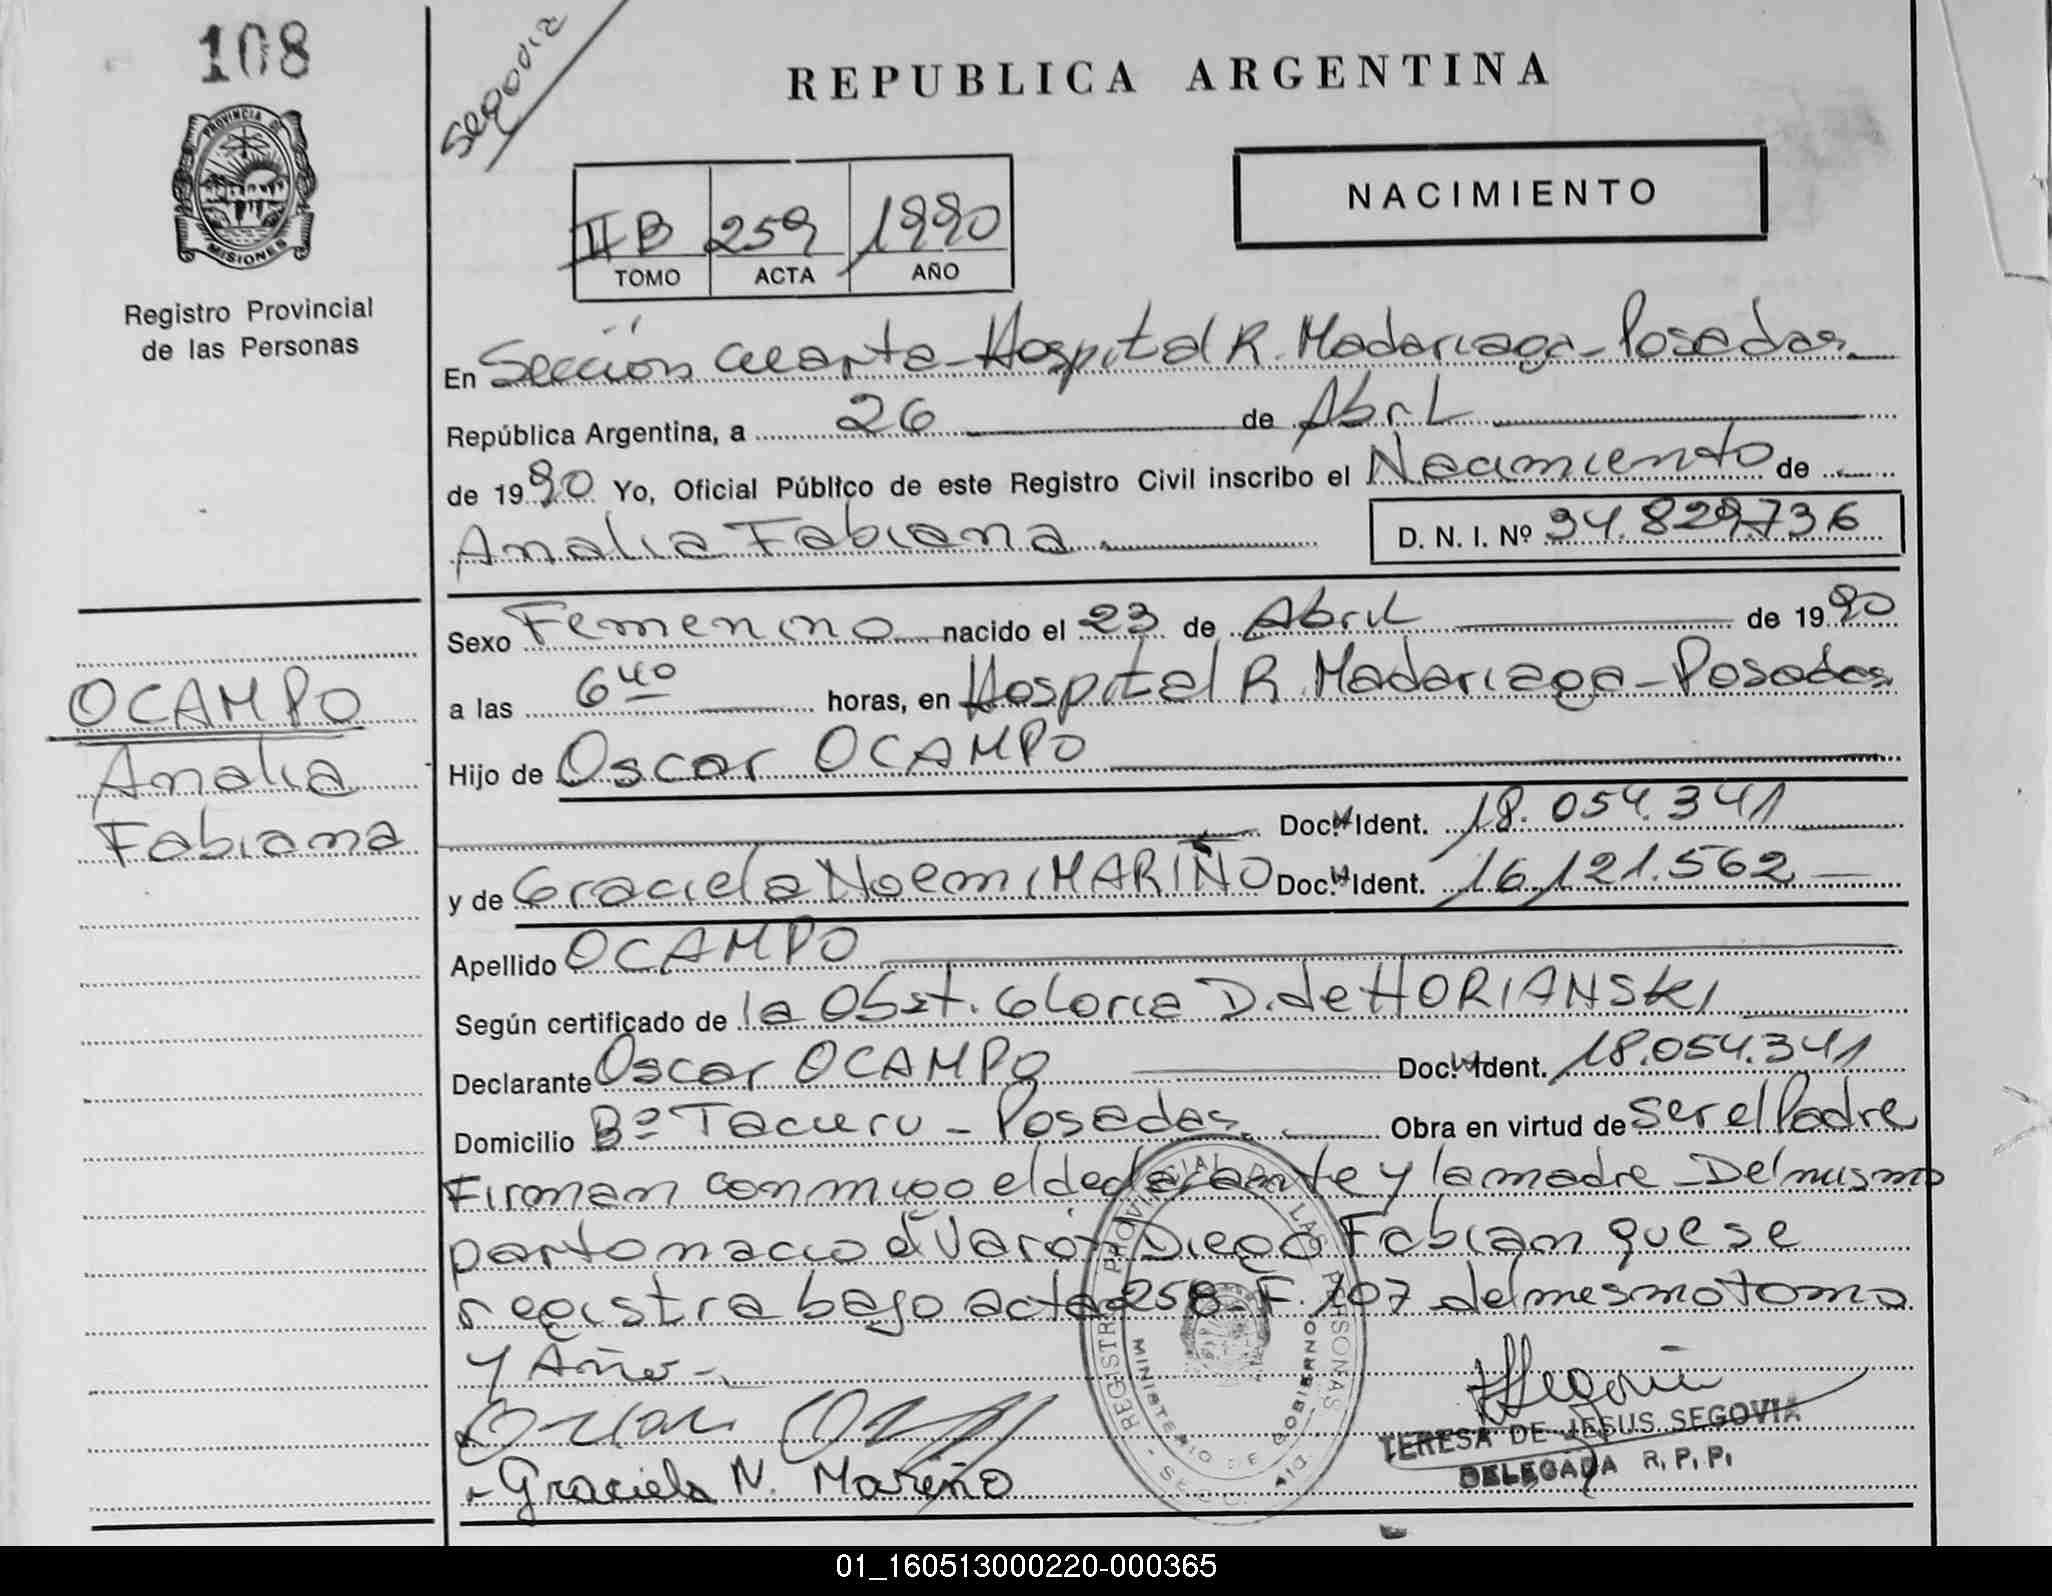 108
Segovia
REPUBLICA ARGENTINA
PROVINCIA DE
MISIONES
Registro Provincial
de las Personas
NACIMIENTO
II B 259 1990
TOMO ACTA AÑO
En Sección Cuarta - Hospital R. Madariaga - Posadas
República Argentina, a 26 de Abril
de 1990 Yo, Oficial Público de este Registro Civil inscribo el Nacimiento de
Analia Fabiana D. N. I. Nº 34.829.736
Sexo Femenino nacido el 23 de Abril de 1990
a las 6 40 horas, en Hospital R. Madariaga - Posadas
OCAMPO
Analia
Fabiana
Hijo de Oscar OCAMPO
Doc. Ident. 18.054.341
y de Graciela Noemi MARIÑO Doc. Ident. 16.121.562
Apellido OCAMPO
Según certificado de la Obst. Gloria D. de HORIANSKI
Declarante Oscar OCAMPO Doc. Ident. 18.054.341
Domicilio Bº Tacuru - Posadas Obra en virtud de ser el Padre
Firman conmigo el declarante y la madre - Del mismo
parto nacio el Varón Diego Fabian que se
registra bajo acta 258 - F. 107 del mismo tomo
y Año -
REGISTRO PROVINCIAL DE LAS PERSONAS
MINISTERIO DE GOBIERNO
Graciela N. Mariño
TERESA DE JESUS SEGOVIA
DELEGADA R. P. P.
01_160513000220-000365